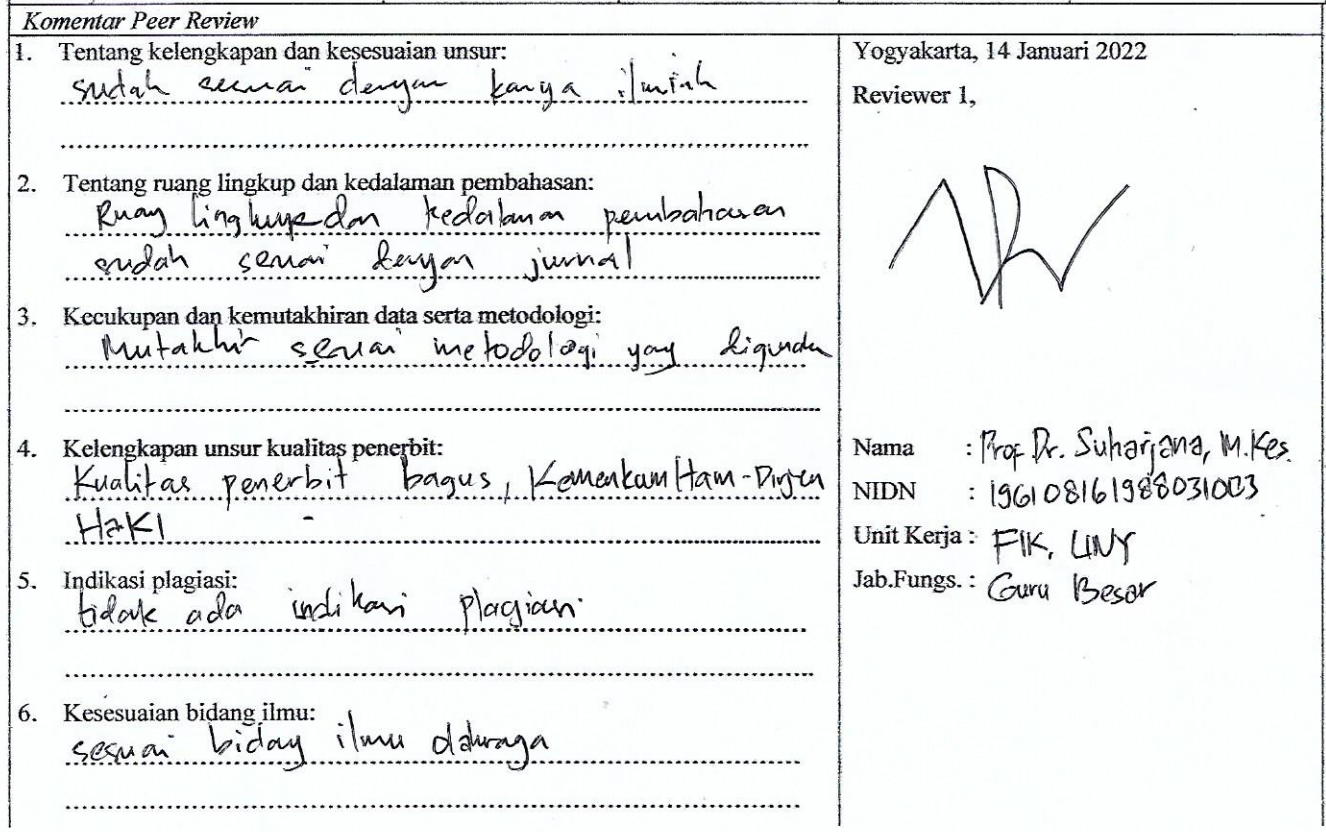 Komentar Peer Review
1. Tentang kelengkapan dan kesesuaian unsur:
sudah sesuai dengan karya ilmiah
2. Tentang ruang lingkup dan kedalaman pembahasan:
Ruang lingkup dan kedalaman pembahasan
sudah sesuai dengan jurnal
3. Kecukupan dan kemutakhiran data serta metodologi:
Mutakhir sesuai metodologi yang
4. Kelengkapan unsur kualitas penerbit:
Kualitas penerbit bagus, KemenkumHam-Dirjen
HaKI
5. Indikasi plagiasi:
tidak ada indikasi plagiasi
6. Kesesuaian bidang ilmu:
sesuai bidang ilmu olahraga
Yogyakarta, 14 Januari 2022
Reviewer 1,
Nama : Prof. Dr. Suharjana, M.Kes.
NIDN : 196108161988031003
Unit Kerja : FIK, UNY
Jab.Fungs. : Guru Besar